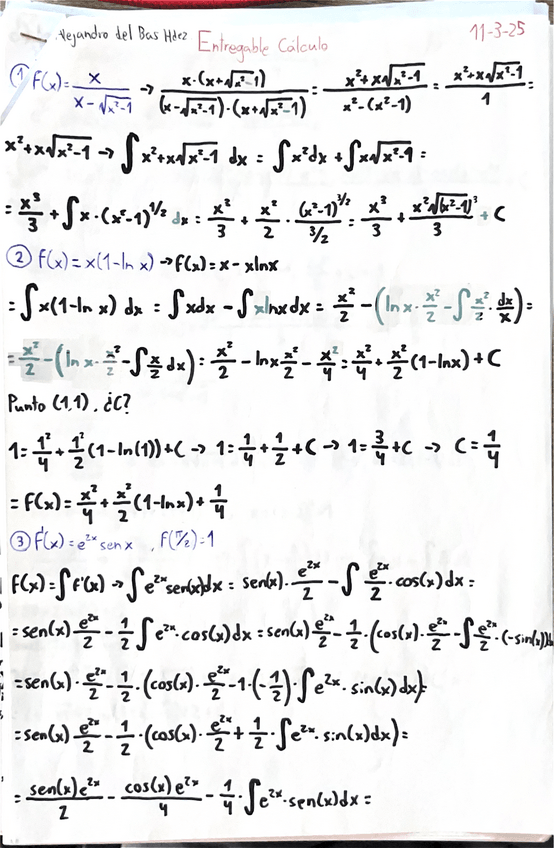 Alejandro del Bas Hdez Entregable Cálculo 11-3-25
① F(x)= x / (x-√(x²-1)) → x·(x+√(x²-1)) / ((x-√(x²-1))·(x+√(x²-1))) = (x²+x√(x²-1)) / (x²-(x²-1)) = (x²+x√(x²-1)) / 1 =
x²+x√(x²-1) → ∫ x²+x√(x²-1) dx = ∫x²dx + ∫x√(x²-1) =
= x³/3 + ∫x·(x²-1)^(1/2) dx = x²/3 + x²/2 · (x²-1)^(3/2) / (3/2) = x³/3 + x²√(x²-1)³ / 3 + C
② F(x)=x(1-ln x) → F(x)=x-xlnx
= ∫x(1-ln x) dx = ∫xdx - ∫xlnxdx = x²/2 - (ln x·x²/2 - ∫x²/2·dx/x) =
= x²/2 - (ln x·x²/2 - ∫x/2 dx) = x²/2 - lnx x²/2 - x²/4 = x²/4 + x²/2 (1-lnx) + C
Punto (1,1). ¿C?
1 = 1²/4 + 1²/2 (1-ln(1)) + C → 1 = 1/4 + 1/2 + C → 1 = 3/4 + C → C = 1/4
= F(x) = x²/4 + x²/2 (1-lnx) + 1/4
③ F'(x)=e^(2x) sen x , F(π/2)=1
F(x)=∫F'(x) → ∫e^(2x) sen(x)dx = sen(x)· e^(2x)/2 - ∫ e^(2x)/2 · cos(x)dx =
= sen(x) e^(2x)/2 - 1/2 ∫e^(2x)·cos(x)dx = sen(x) e^(2x)/2 - 1/2·(cos(x)· e^(2x)/2 - ∫e^(2x)/2·(-sin(x))
= sen(x)· e^(2x)/2 - 1/2·(cos(x)· e^(2x)/2 - 1·(-1/2)·∫e^(2x)·sin(x)dx) =
= sen(x)· e^(2x)/2 - 1/2·(cos(x)· e^(2x)/2 + 1/2·∫e^(2x)·sin(x)dx) =
= sen(x)e^(2x)/2 - cos(x)e^(2x)/4 - 1/4·∫e^(2x)·sen(x)dx =